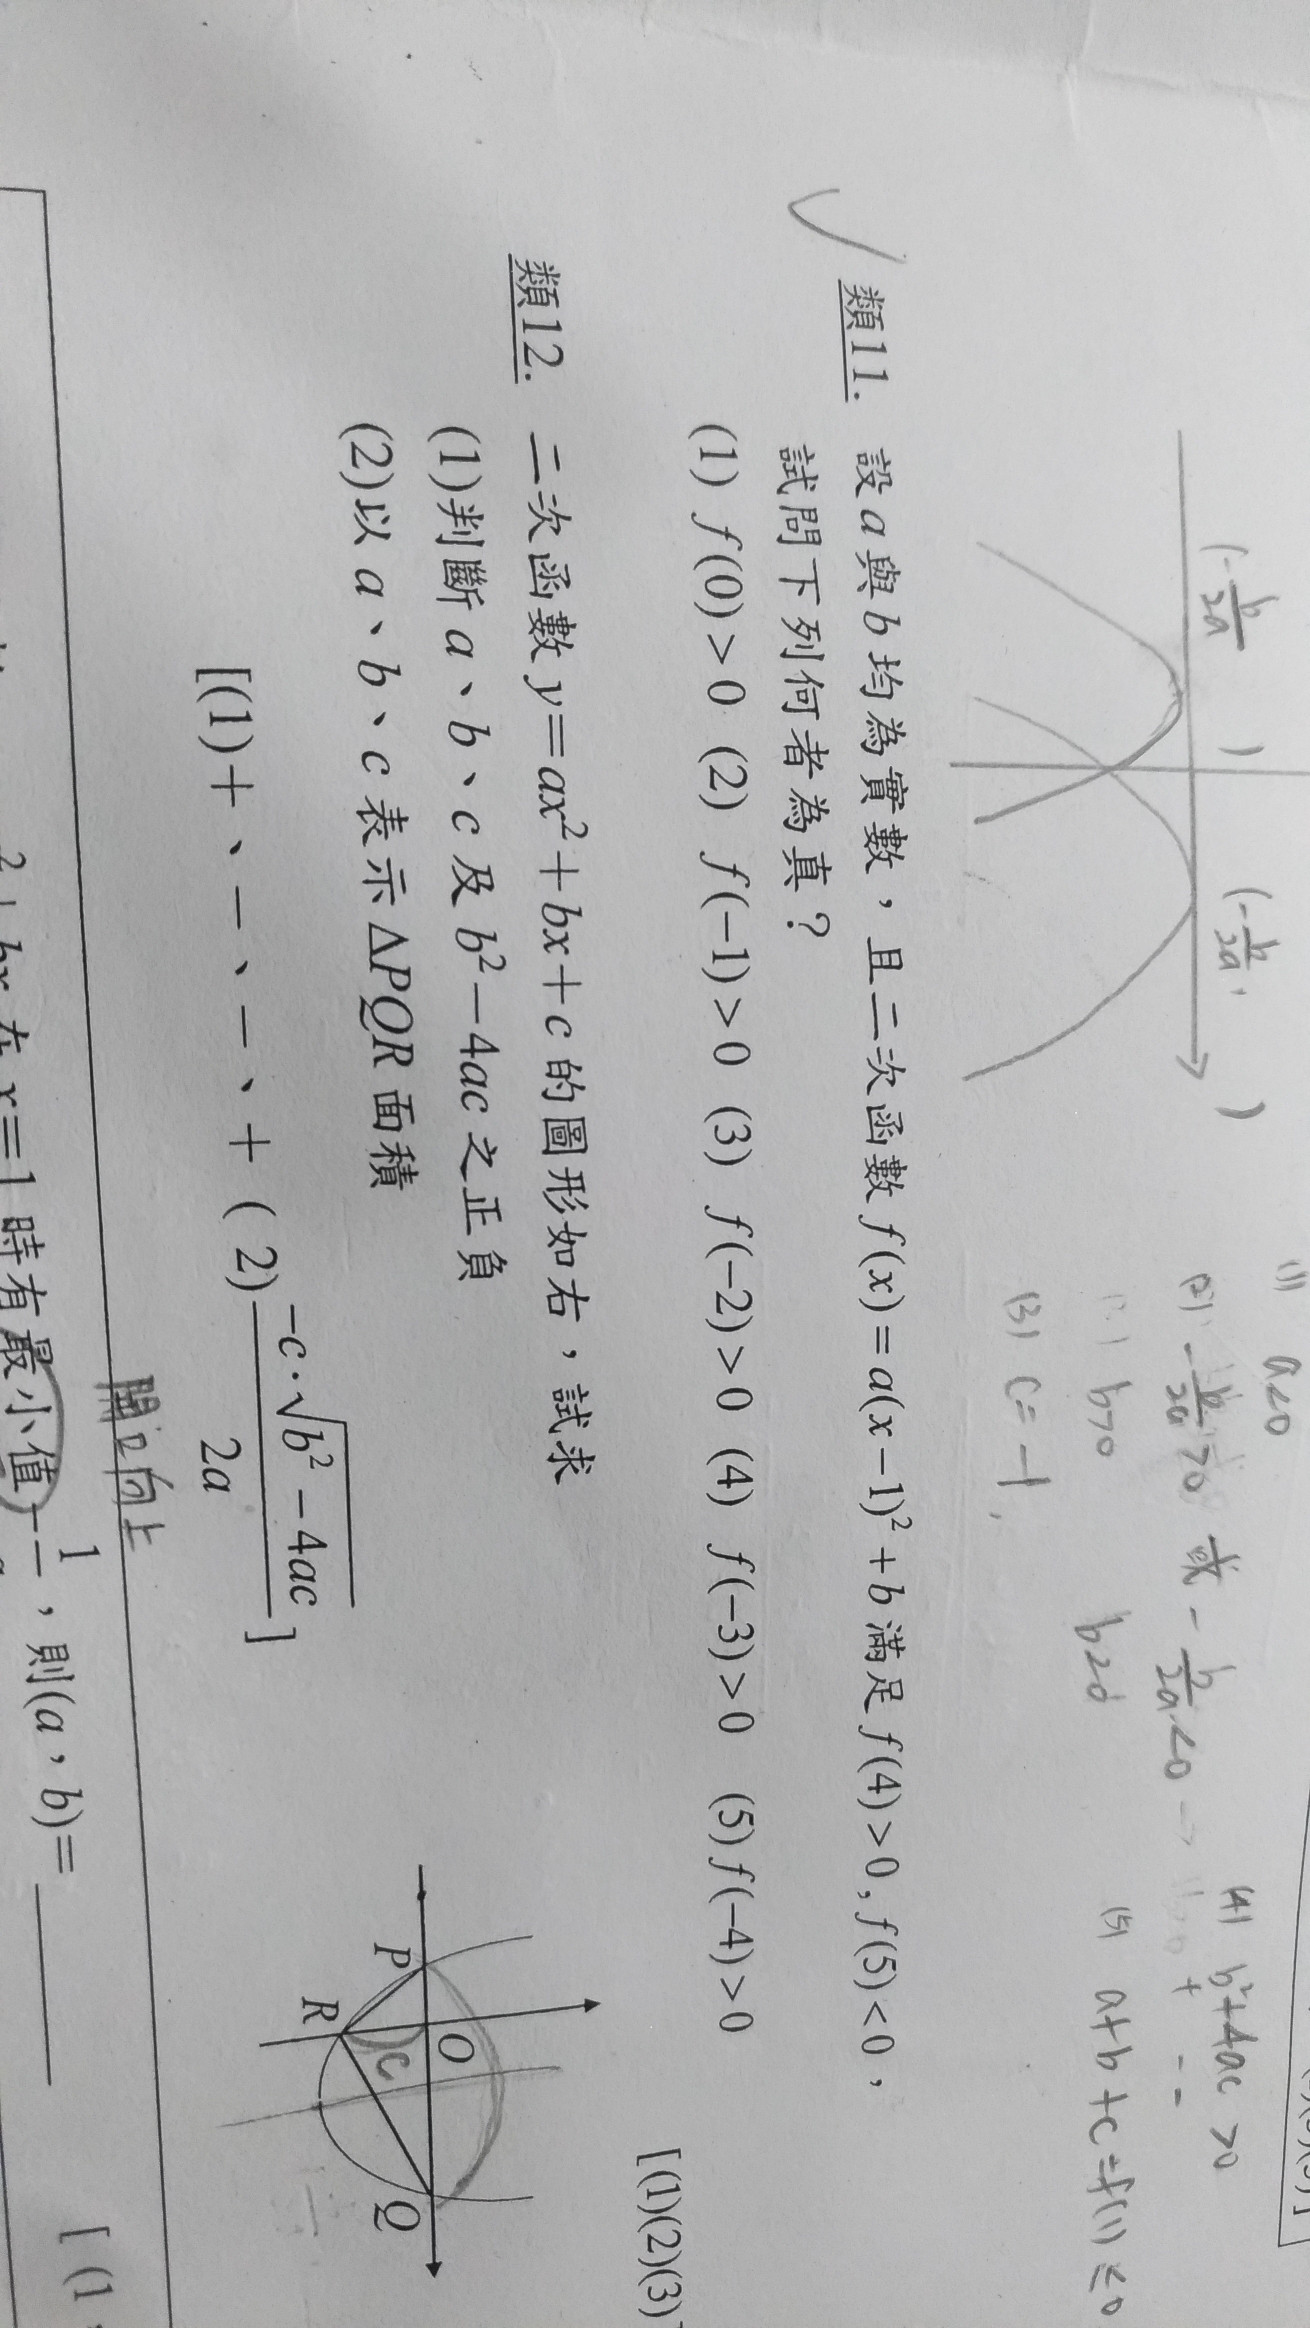 (-b/2a    )    (-b/2a,    )
(1) a<0
(2) -b/2a>0 或 -b/2a<0 →
b>0    b<0
(3) c=-1
(4) b²+4ac>0
(5) a+b+c=f(1)≤0
類11. 設a與b均為實數，且二次函數f(x)=a(x-1)²+b滿足f(4)>0, f(5)<0，
試問下列何者為真？
(1) f(0)>0 (2) f(-1)>0 (3) f(-2)>0 (4) f(-3)>0 (5) f(-4)>0
[(1)(2)(3)
類12. 二次函數y=ax²+bx+c的圖形如右，試求
(1)判斷a、b、c及b²-4ac之正負
(2)以a、b、c表示ΔPQR面積
[(1)+、-、-、+ (2) -c·√(b²-4ac)/2a]
P O Q
R C
開口向上
bx在x=1時有最小值-1/，則(a，b)=
[(1